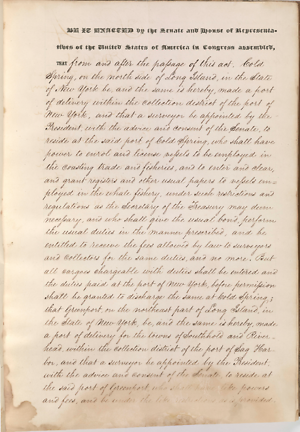 BE IT ENACTED by the Senate and House of Representa-
tives of the United States of America in Congress assembled,
THAT from and after the passage of this act. Cold
Spring, on the north side of Long Island, in the State
of New York be, and the same is hereby, made a port
of delivery within the collection district of the port of
New York, and that a surveyor be appointed by the
President with the advice and consent of the Senate, to
reside at the said port of Cold Spring, who shall have
power to enrol and license vessels to be employed in
the coasting trade and fisheries, and to enter and clear,
and grant registers and other usual papers to vessels em
ployed in the whale fishery, under such restrictions and
regulations as the Secretary of the Treasury may deem
necessary, and who shall give the usual bond, perform
the usual duties in the manner prescribed, and be
entitled to receive the fees allowed by law to surveyors
and collectors for the same duties, and no more. But
all cargoes chargeable with duties shall be entered and
the duties paid at the port of New York, before permission
shall be granted to discharge the same at Cold Spring;
that Greenport, on the northeast part of Long Island, in
the State of New York, be, and the same is hereby, made
a port of delivery for the towns of Southhold and River
head, within the collection district of the port of Sag Har
bor, and that a surveyor be appointed by the President
with the advice and consent of the Senate to reside at
the said port of Greenport who shall have like powers
and fees, and be under the